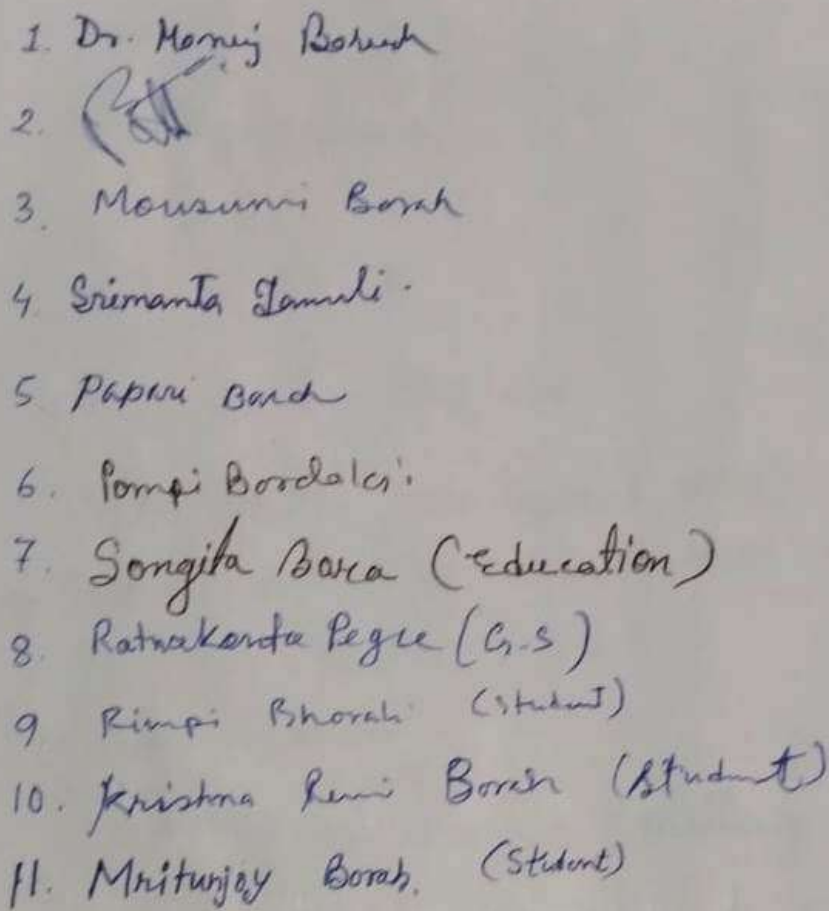 1. Dr. Monuj Borah
2.
3. Mousumi Borah
4 Srimanta Jamuli.
5 Papari Borah
6. Pompi Bordoloi.
7. Songita Bora (Education)
8. Ratnakanta Pegu (G.S)
9 Rimpi Bhorali (Student)
10. Krishna Rani Borah (Student)
11. Mritunjoy Borah. (Student)